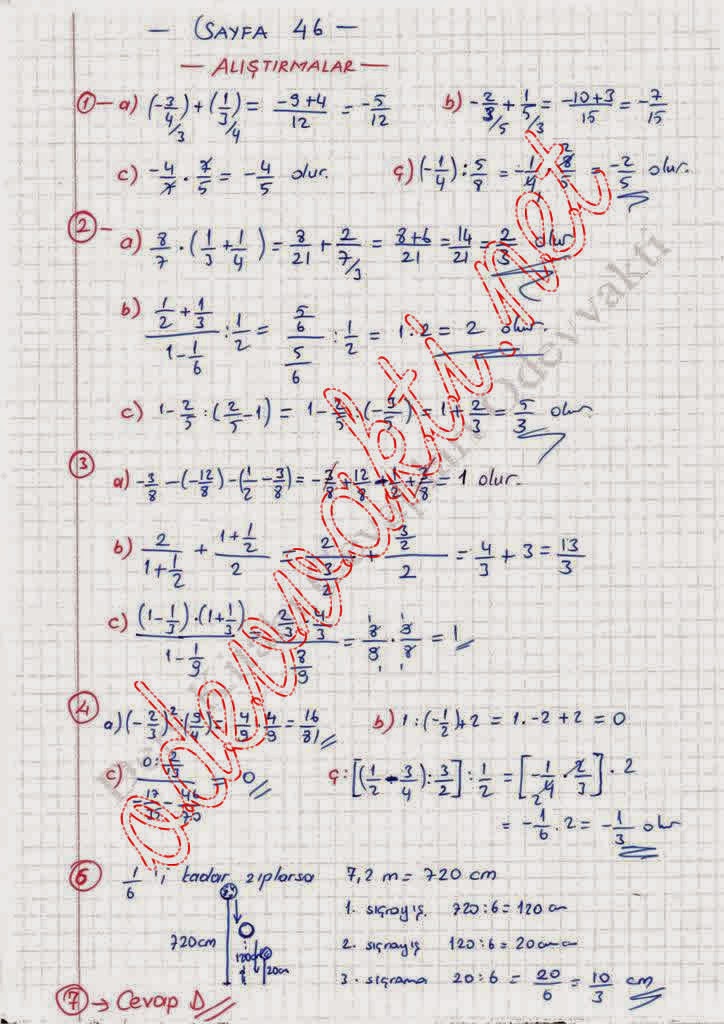 — SAYFA 46 —
— ALIŞTIRMALAR —
①- a) (-3/4)/3 + (1/3)/4 = -9+4/12 = -5/12 b) -2/3/5 + 1/5/3 = -10+3/15 = -7/15
c) -4/7 · 7/5 = -4/5 olur. ç) (-1/4) : 5/8 = -1/4 · 8/5 = -2/5 olur.
②- a) 8/7 · (1/3 + 1/4) = 8/21 + 2/7/3 = 8+6/21 = 14/21 = 2/3 olur
b) (1/2 + 1/3)/(1 - 1/6) : 1/2 = (5/6)/(5/6) : 1/2 = 1 · 2 = 2 olur.
c) 1 - 2/5 : (2/5 - 1) = 1 - 2/5 : (-3/5) = 1 + 2/3 = 5/3 olur.
③ a) -3/8 - (-12/8) - (1/2 - 3/8) = -3/8 + 12/8 - 1/2 + 3/8 = 1 olur.
b) 2/(1 + 1/2) + (1 + 1/2)/2 = 2/(3/2) + (3/2)/2 = 4/3 + 3 = 13/3
c) (1 - 1/3) · (1 + 1/3)/(1 - 1/9) = (2/3 · 4/3)/(8/9) = 8/9 · 9/8 = 1
④ a) (-2/3)² : (9/4) = 4/9 · 4/9 = 16/81 b) 1 : (-1/2) + 2 = 1 . -2 + 2 = 0
c) 0 : 2/3 = 0 ç: [(1/2 - 3/4) : 3/2] : 1/2 = [-1/4 · 2/3] · 2
= -1/6 . 2 = -1/3 olur
⑥ 1/6 'i kadar zıplarsa 7,2 m = 720 cm
1. sıçrayış 720 : 6 = 120 cm
720cm 120cm 20cm
2. sıçrayış 120 : 6 = 20 cm
3. sıçrama 20 : 6 = 20/6 = 10/3 cm
⑦ → Cevap D
odevvakti.net